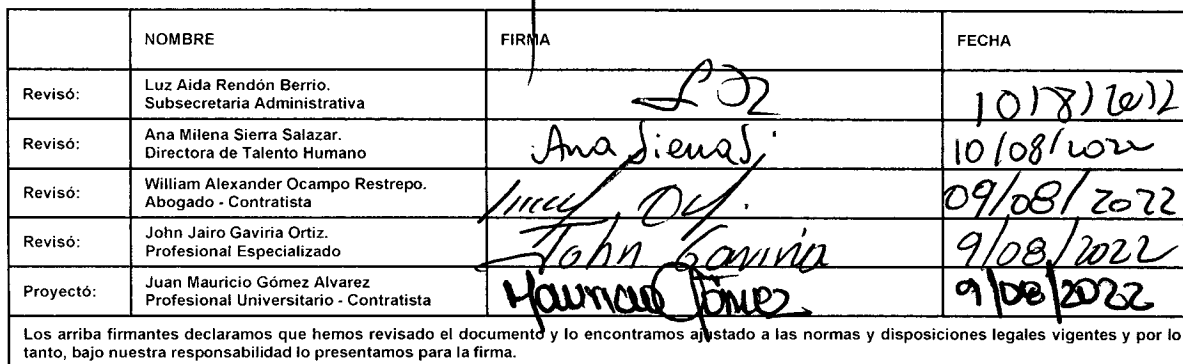 NOMBRE FIRMA FECHA
Revisó: Luz Aida Rendón Berrio.
Subsecretaria Administrativa
10/8/2022
Revisó: Ana Milena Sierra Salazar.
Directora de Talento Humano
Ana Sierra S. 10/08/2022
Revisó: William Alexander Ocampo Restrepo.
Abogado - Contratista
09/08/2022
Revisó: John Jairo Gaviria Ortiz.
Profesional Especializado
John Gaviria 9/08/2022
Proyectó: Juan Mauricio Gómez Alvarez
Profesional Universitario - Contratista
Mauricio Gómez 9/08/2022
Los arriba firmantes declaramos que hemos revisado el documento y lo encontramos ajustado a las normas y disposiciones legales vigentes y por lo
tanto, bajo nuestra responsabilidad lo presentamos para la firma.